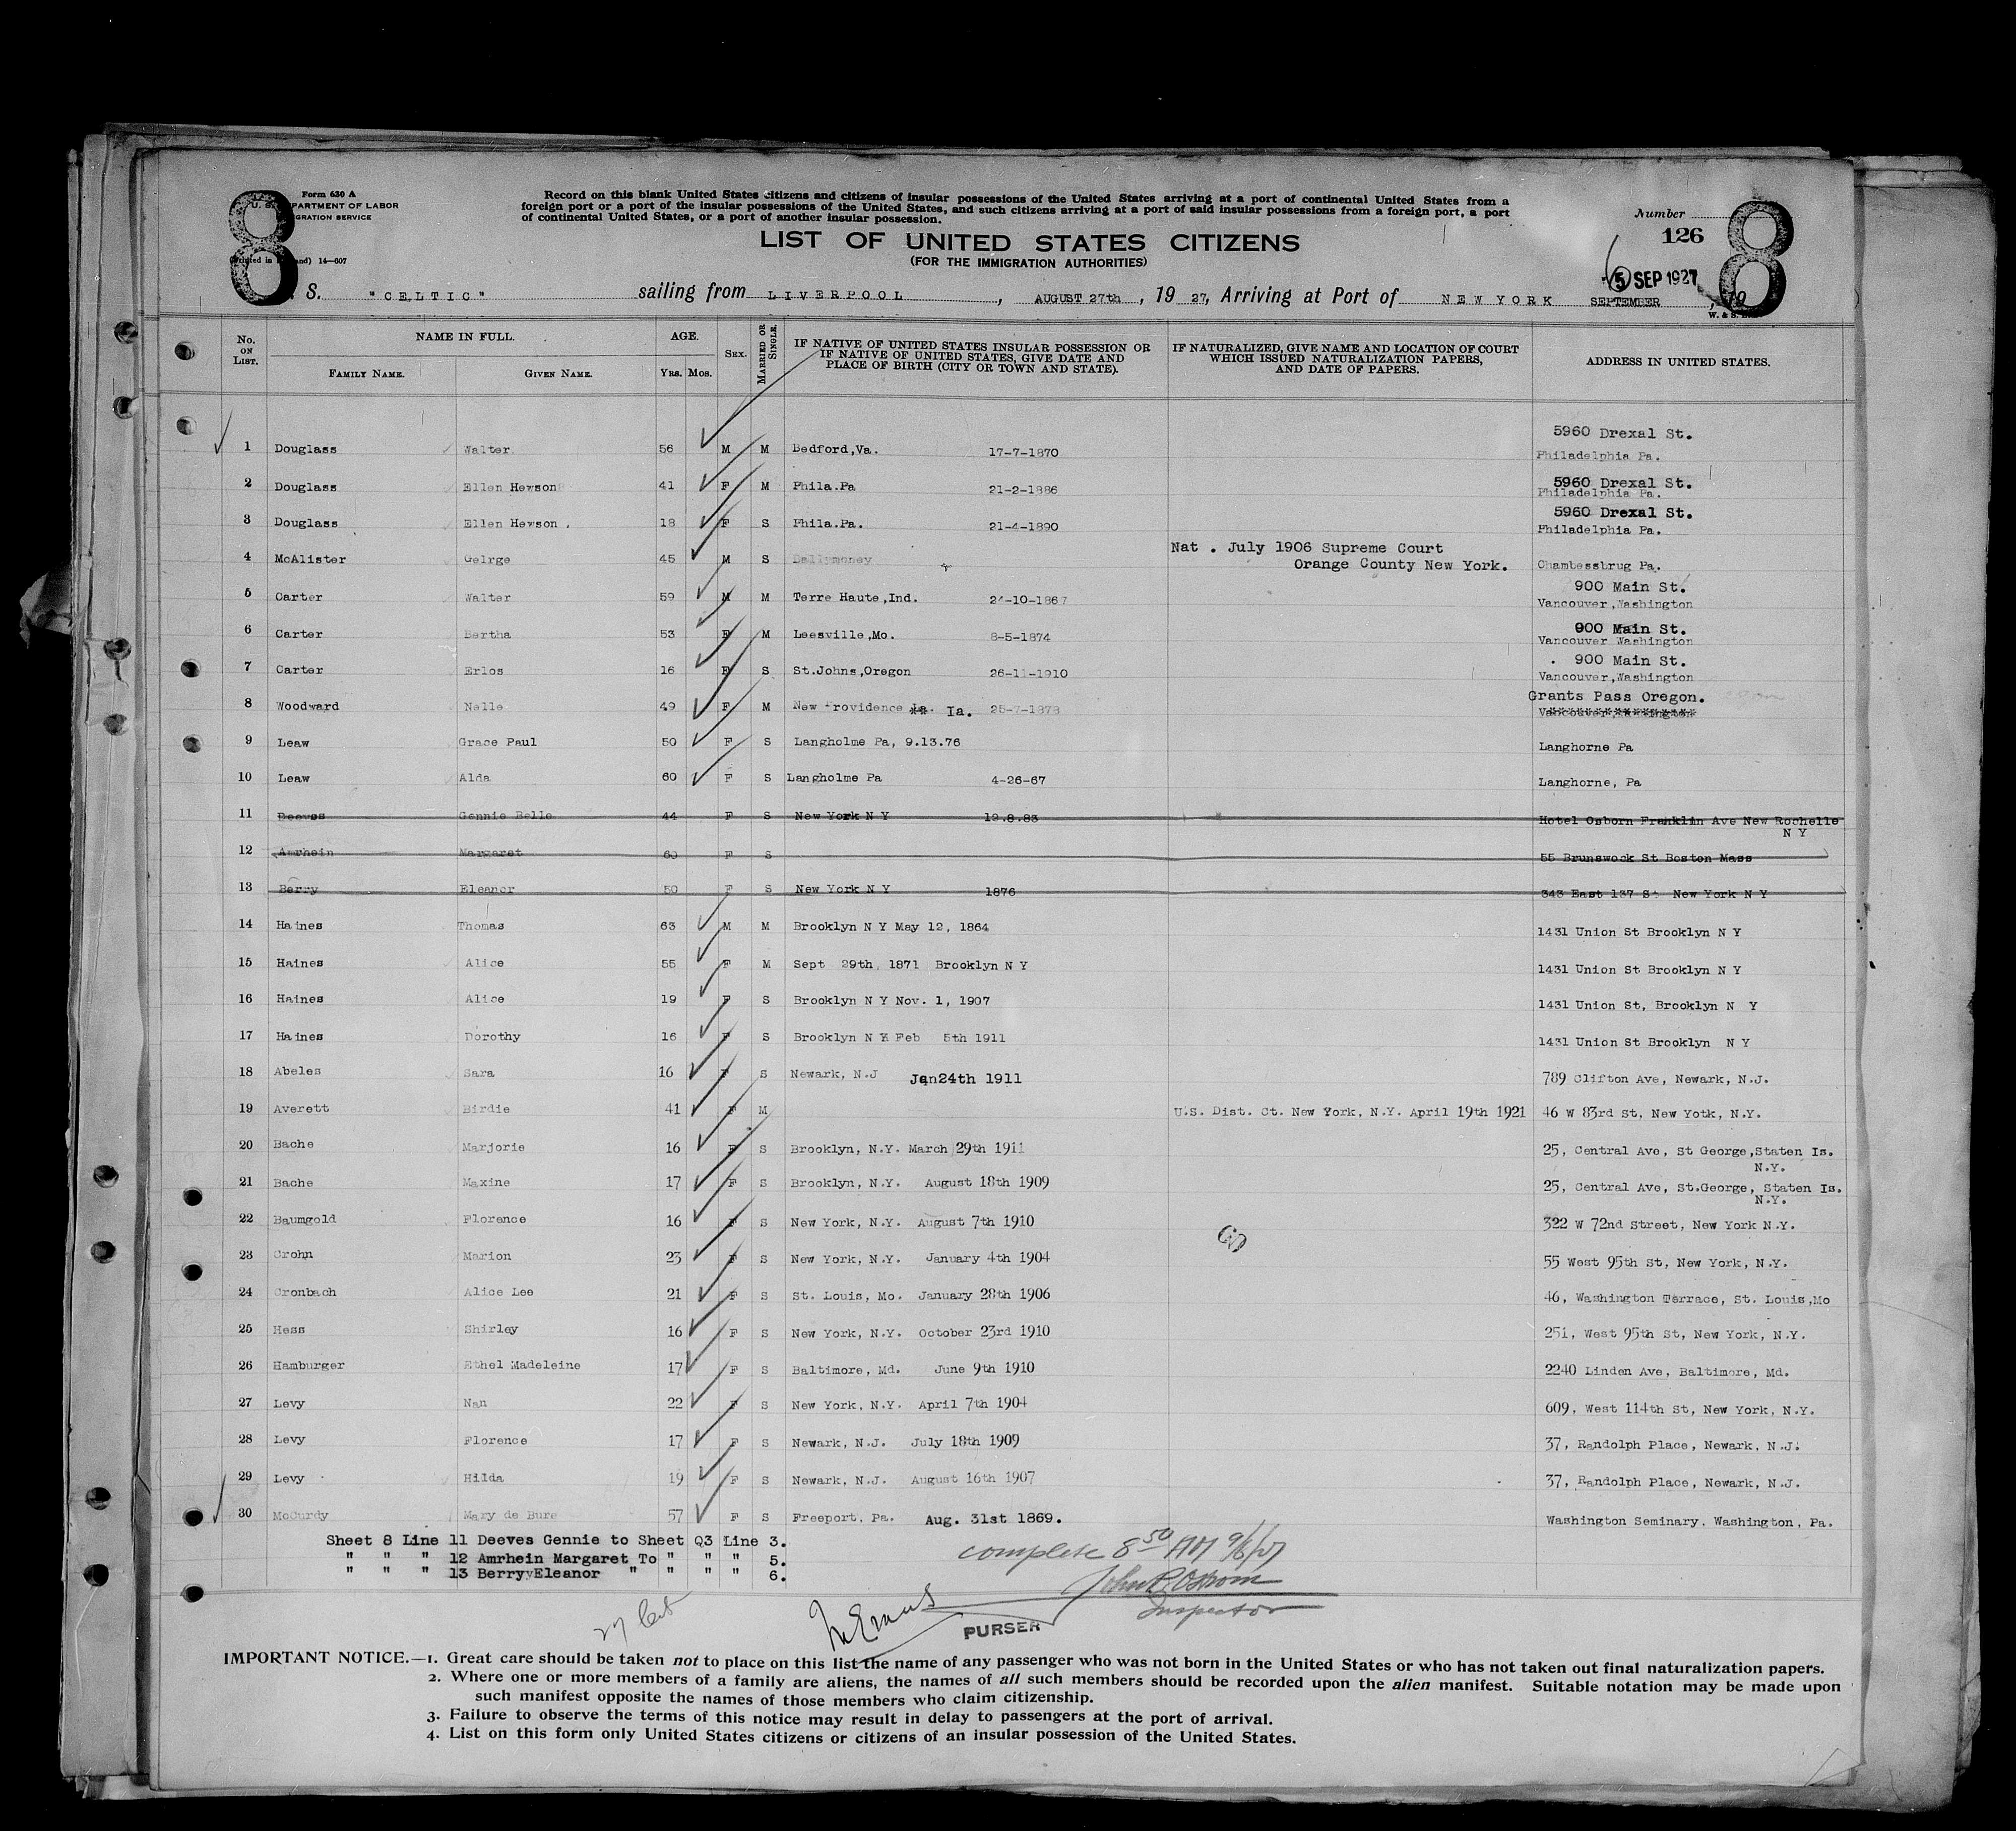 8
Form 630 A
U. S. DEPARTMENT OF LABOR
IMMIGRATION SERVICE
14—607
Record on this blank United States citizens and citizens of insular possessions of the United States arriving at a port of continental United States from a
foreign port or a port of the insular possessions of the United States, and such citizens arriving at a port of said insular possessions from a foreign port, a port
of continental United States, or a port of another insular possession.
LIST OF UNITED STATES CITIZENS
(FOR THE IMMIGRATION AUTHORITIES)
Number
126
8
5 SEP 1927
S. "CELTIC" sailing from LIVERPOOL, AUGUST 27th, 19 27, Arriving at Port of NEW YORK SEPTEMBER, 19
No. ON LIST. NAME IN FULL. FAMILY NAME. GIVEN NAME. AGE. Yrs. Mos. SEX. MARRIED OR SINGLE. IF NATIVE OF UNITED STATES INSULAR POSSESSION OR IF NATIVE OF UNITED STATES, GIVE DATE AND PLACE OF BIRTH (CITY OR TOWN AND STATE). IF NATURALIZED, GIVE NAME AND LOCATION OF COURT WHICH ISSUED NATURALIZATION PAPERS, AND DATE OF PAPERS. ADDRESS IN UNITED STATES.
1 Douglass Walter 56 M M Bedford,Va. 17-7-1870 5960 Drexal St. Philadelphia Pa.
2 Douglass Ellen Hewson 41 F M Phila.Pa 21-2-1886 5960 Drexal St. Philadelphia Pa.
3 Douglass Ellen Hewson 18 F S Phila.Pa. 21-4-1890 5960 Drexal St. Philadelphia Pa.
4 McAlister Gelrge 45 M S Ballymoney Nat . July 1906 Supreme Court Orange County New York. Chambessbrug Pa.
5 Carter Walter 59 M M Terre Haute,Ind. 24-10-1867 900 Main St. Vancouver,Washington
6 Carter Bertha 53 F M Leesville,Mo. 8-5-1874 900 Main St. Vancouver Washington
7 Carter Erlos 16 F S St.Johns,Oregon 26-11-1910 900 Main St. Vancouver,Washington
8 Woodward Nelle 49 F M New Providence Ia. 25-7-1878 Grants Pass Oregon. Vancouver,Washington
9 Leaw Grace Paul 50 F S Langholme Pa, 9.13.76 Langhorne Pa
10 Leaw Alda 60 F S Langholme Pa 4-26-67 Langhorne, Pa
11 Deeves Gennie Belle 44 F S New York N Y 12.8.83 Hotel Osborn Franklin Ave New Rochelle N Y
12 Amrhein Margaret 60 F S 55 Brunswock St Boston Mass
13 Berry Eleanor 50 F S New York N Y 1876 343 East 137 St New York N Y
14 Haines Thomas 63 M M Brooklyn N Y May 12, 1864 1431 Union St Brooklyn N Y
15 Haines Alice 55 F M Sept 29th, 1871 Brooklyn N Y 1431 Union St Brooklyn N Y
16 Haines Alice 19 F S Brooklyn N Y Nov. 1, 1907 1431 Union St, Brooklyn N Y
17 Haines Dorothy 16 F S Brooklyn N Y Feb 5th 1911 1431 Union St Brooklyn N Y
18 Abeles Sara 16 F S Newark, N.J Jan24th 1911 789 Clifton Ave, Newark, N.J.
19 Averett Birdie 41 F M U.S. Dist. Ct. New York, N.Y. April 19th 1921 46 W 83rd St, New Yotk, N.Y.
20 Bache Marjorie 16 F S Brooklyn, N.Y. March 29th 1911 25, Central Ave, St George,Staten Is. N.Y.
21 Bache Maxine 17 F S Brooklyn, N.Y. August 18th 1909 25, Central Ave, St.George, Staten Is. N.Y.
22 Baumgold Florence 16 F S New York, N.Y. August 7th 1910 322 W 72nd Street, New York N.Y.
23 Crohn Marion 23 F S New York, N.Y. January 4th 1904 55 West 95th St, New York, N.Y.
24 Cronbach Alice Lee 21 F S St. Louis, Mo. January 28th 1906 46, Washington Terrace, St. Louis,Mo
25 Hess Shirley 16 F S New York, N.Y. October 23rd 1910 251, West 95th St, New York, N.Y.
26 Hamburger Ethel Madeleine 17 F S Baltimore, Md. June 9th 1910 2240 Linden Ave, Baltimore, Md.
27 Levy Nan 22 F S New York, N.Y. April 7th 1904 609, West 114th St, New York, N.Y.
28 Levy Florence 17 F S Newark, N.J. July 18th 1909 37, Randolph Place, Newark, N.J.
29 Levy Hilda 19 F S Newark, N.J. August 16th 1907 37, Randolph Place, Newark, N.J.
30 McCurdy Mary de Bure 57 F S Freeport. Pa. Aug. 31st 1869. Washington Seminary, Washington, Pa.
Sheet 8 Line 11 Deeves Gennie to Sheet Q3 Line 3.
" " " 12 Amrhein Margaret To " " " 5.
" " " 13 Berry Eleanor " " " " 6.
complete 8 50 AM 9/6/27
John P. Ostrom
Inspector
PURSER
IMPORTANT NOTICE.—1. Great care should be taken not to place on this list the name of any passenger who was not born in the United States or who has not taken out final naturalization papers.
2. Where one or more members of a family are aliens, the names of all such members should be recorded upon the alien manifest. Suitable notation may be made upon
such manifest opposite the names of those members who claim citizenship.
3. Failure to observe the terms of this notice may result in delay to passengers at the port of arrival.
4. List on this form only United States citizens or citizens of an insular possession of the United States.